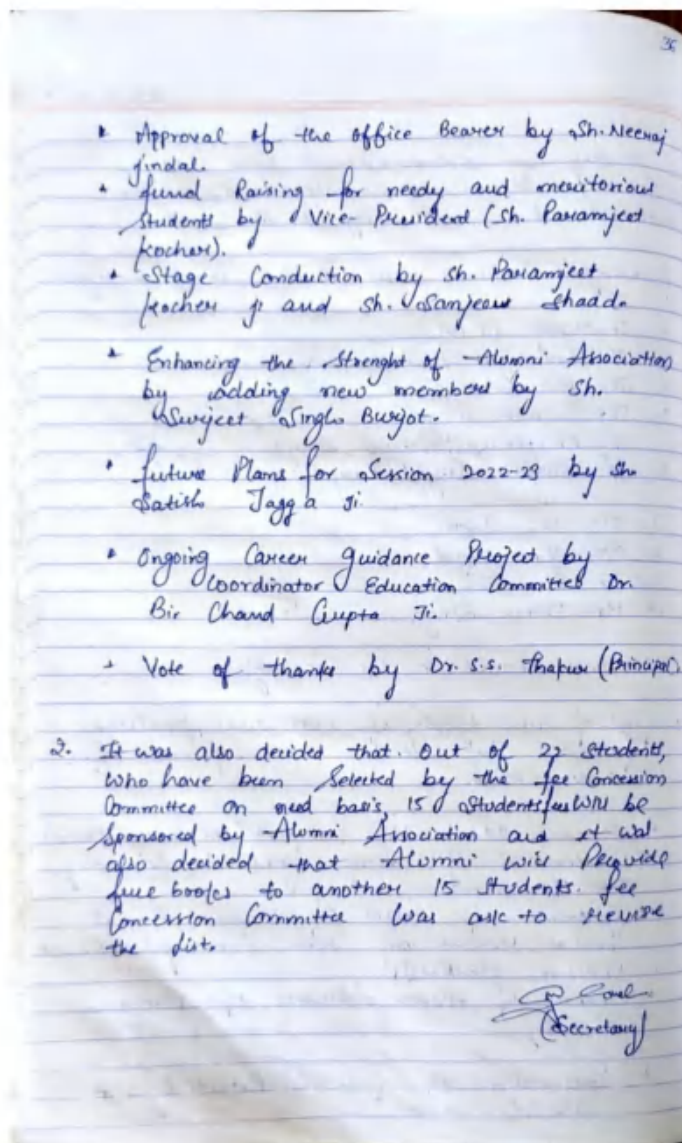 36
* Approval of the office Bearer by Sh. Neeraj
Jindal.
* fund Raising for needy and meritorious
students by Vice-President (Sh. Paramjeet
kocher).
* Stage Conduction by Sh. Paramjeet
kocher ji and Sh. Sanjeev Shaad.
* Enhancing the Strenght of Alumni Association
by adding new members by Sh.
Surjeet Singh Burjot.
* future Plans for Session 2022-23 by Sh.
Satish Jagga Ji.
* Ongoing Career guidance Project by
Coordinator Education Committee Dr.
Bir Chand Gupta Ji.
+ Vote of thanks by Dr. S.S. Thapur (Principal).
2. It was also decided that. Out of 22 Students,
who have been Selected by the fee Concession
Committee on need basis, 15 students fees will be
Sponsored by Alumni Association and it was
also decided that Alumni will Provide
free books to another 15 Students. fee
Concession Committee was ask to revise
the list.
(Secretary)